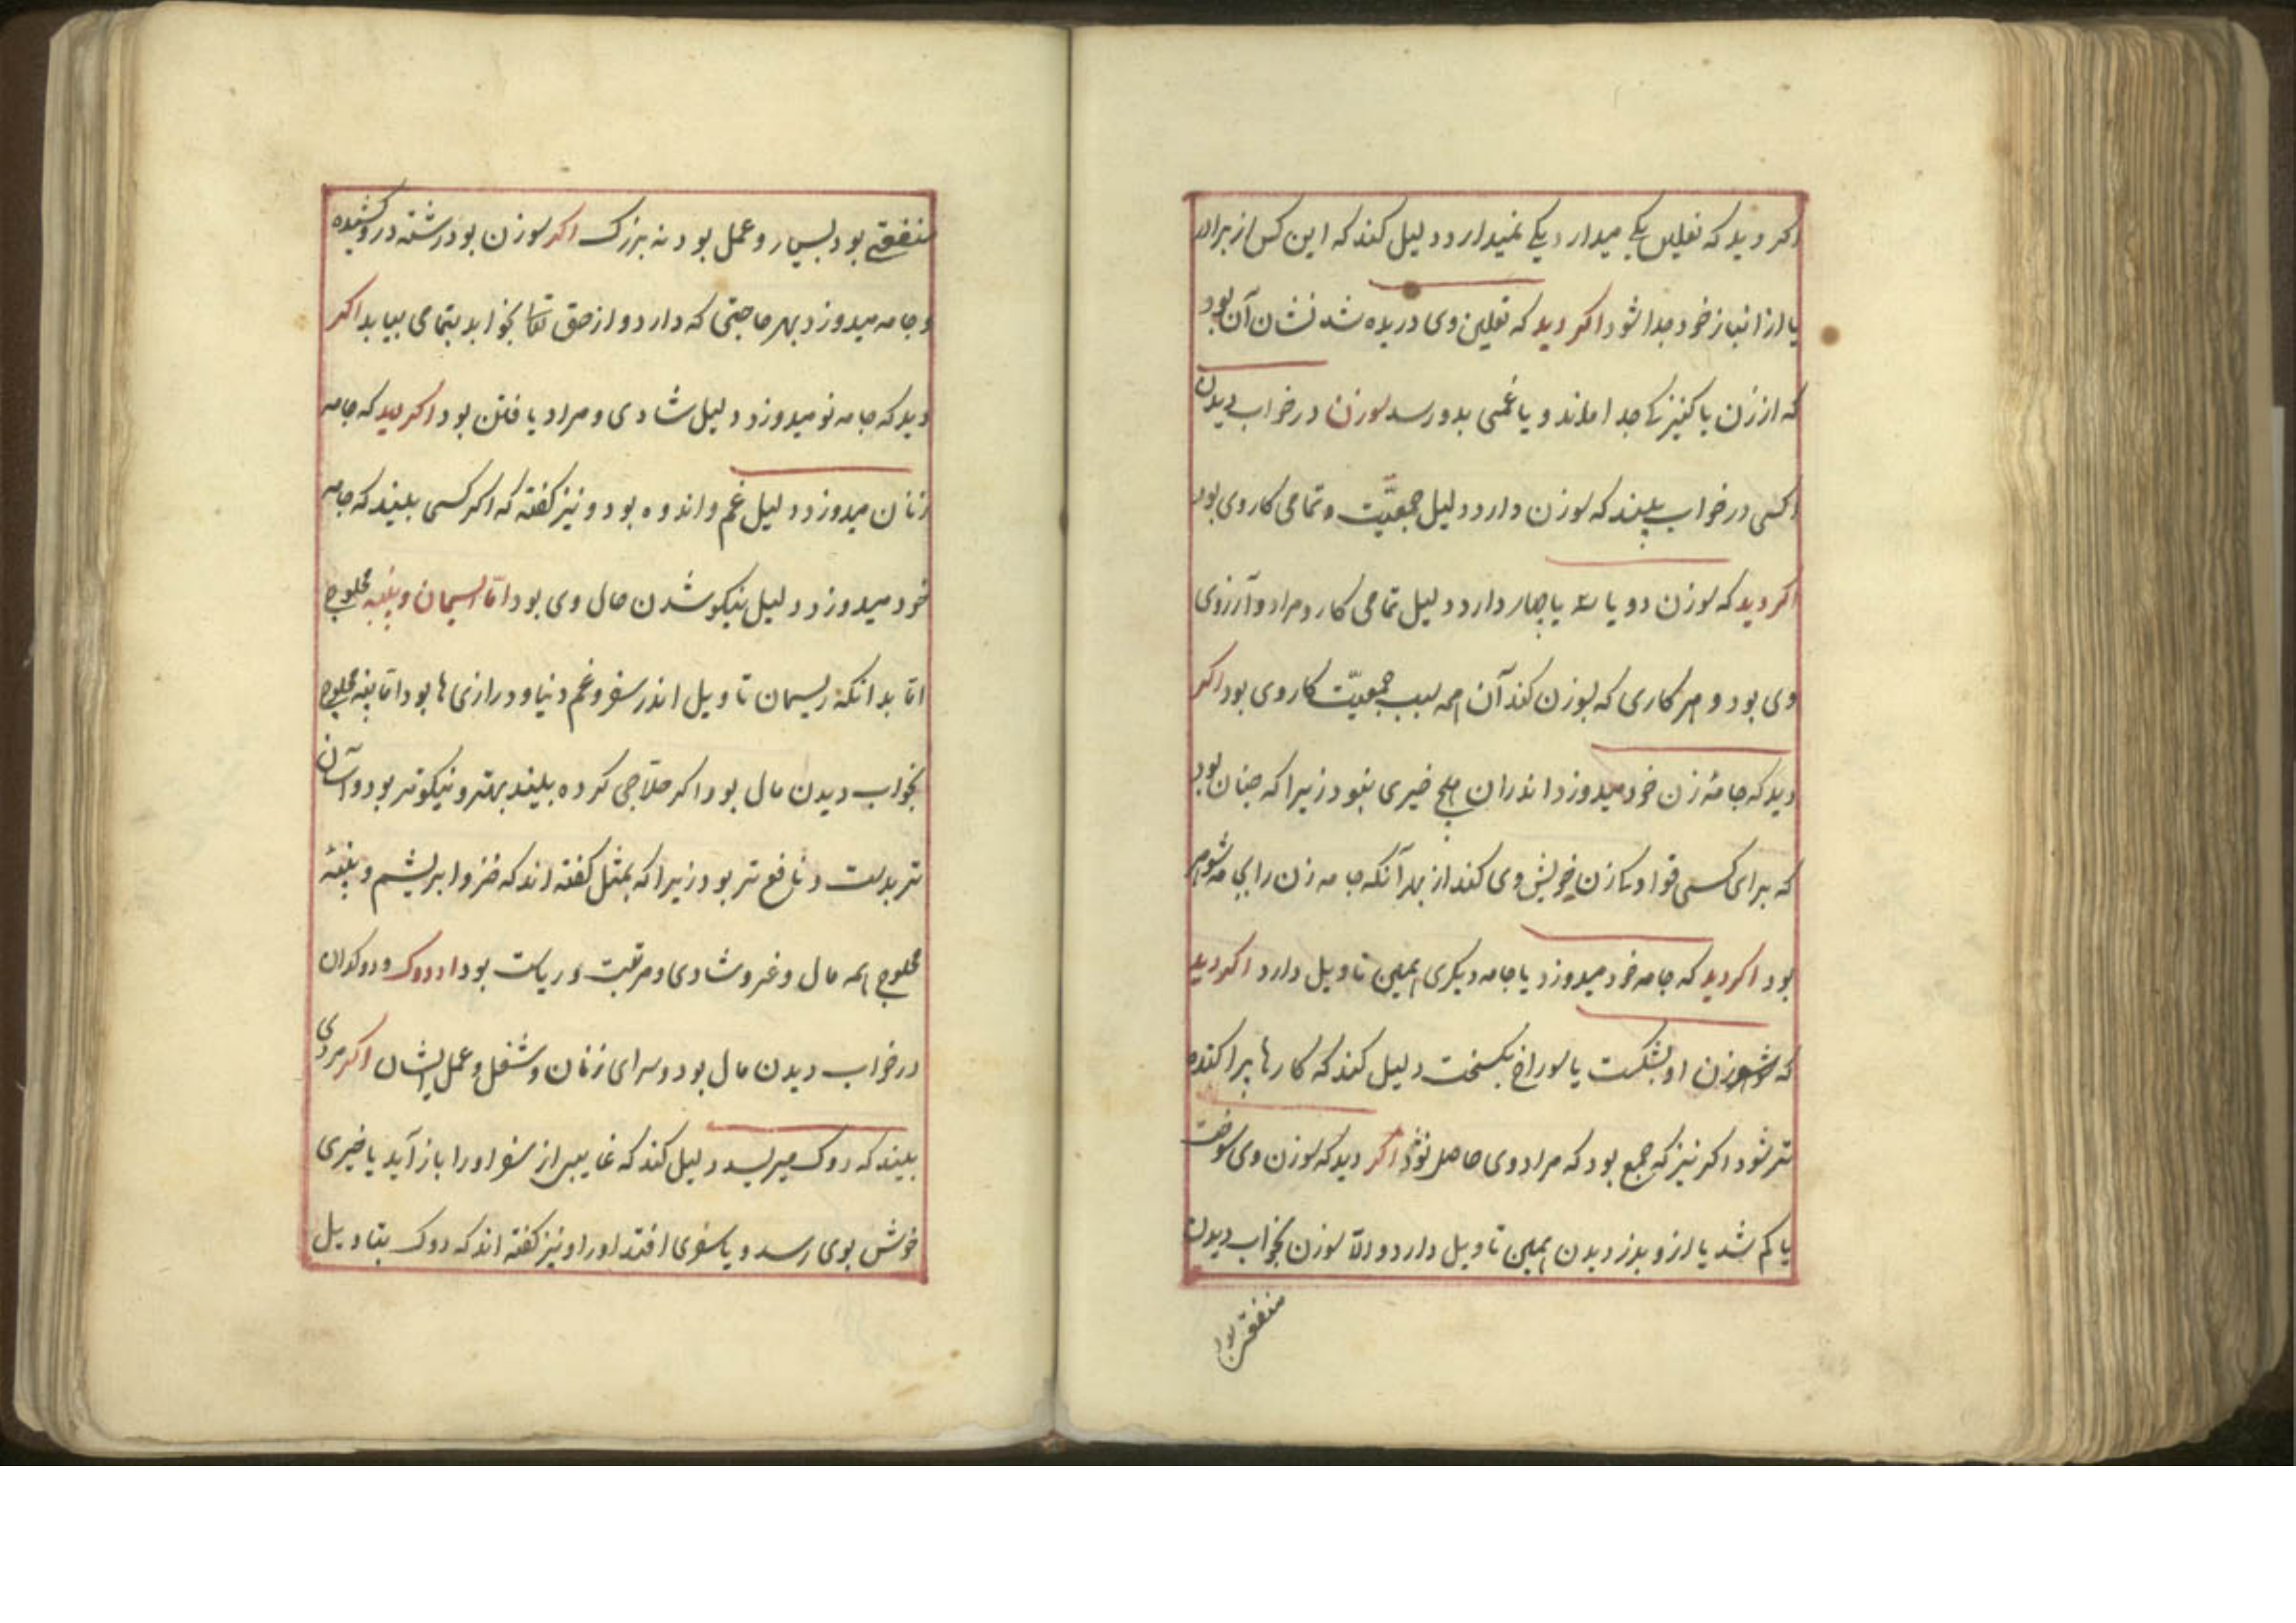 اکر دید که نعلین یکی میدارد یکی نمیدارد دلیل کند که این کس از برادر
یا از انباز خود جدا شود اکر دید که نعلین وی دریده شد نشان آن بود
که از زن یا کنیزکی جدا ماند و یا غمی بدو رسد سوزن در خواب دیدن
اکسی در خواب بیند که سوزن دارد دلیل جمعیّت و تمامی کار وی بود
اکر دید که سوزن دو یا سه یا چهار دارد دلیل تمامی کار و مراد و آرزوی
وی بود و هر کاری که بسوزن کند آن همه سبب جمعیّت کار وی بود اکر
دید که جامهٔ زن خود میدوزد اندران هیچ خیری نبود زیرا که چنان بود
که برای کسی قوادی زن خویش وی کند از بهر آنکه جامه زن را شوهر
بود اکر دید که جامه خود میدوزد یا جامه دیکری همین تاویل دارد اکر دید
که سوزن او بشکست یا سوراخ بکسخت دلیل کند که کارها پراکنده
تر شود اکر نیز که جمع بود که مراد وی حاصل نشود اکر دید که سوزن وی سوخت
یا کم شد یا ازو بدزدیدن همین تاویل دارد و الّا سوزن بخواب دیدن
منفعتی بود
منفعتی بود بسیار و عمل بود نه بزرک اکر سوزن بود رشته درو کشیده
و جامه میدوزد بهر حاجتی که دارد و از حق تعالی بخواهد بتمامی بیابد اکر
دید که جامه نو میدوزد دلیل شادی و مراد یافتن بود اکر دید که جامه
زنان میدوزد دلیل غم و اندوه بود و نیز کفته که اکر کسی بیند که جامه
خود میدوزد دلیل نیکو شدن حال وی بود امّا ریسمان و پنبه محلوج
امّا بدانکه ریسمان تاویل اندر سفر و غم دنیا و درازی ها بود امّا پنبه محلوج
بخواب دیدن مال بود اکر حلّاجی کرده بیند بهتر و نیکوتر بود و آسان
تر بدست و نافع تر بود زیرا که بمثل کفته اند که خز و ابریشم و پنبهٔ
محلوج همه مال و عز و شادی و مرتبت و ریاست بود اما دوک و دوکدان
در خواب دیدن مال بود و سرای زنان و شغل و عمل ایشان اکر مردی
بیند که دوک میریسد دلیل کند که غایبی از سفر او را باز آید یا خیری
خوش بوی رسد و یا سفری افتد او را و نیز کفته اند که دوک بتاویل